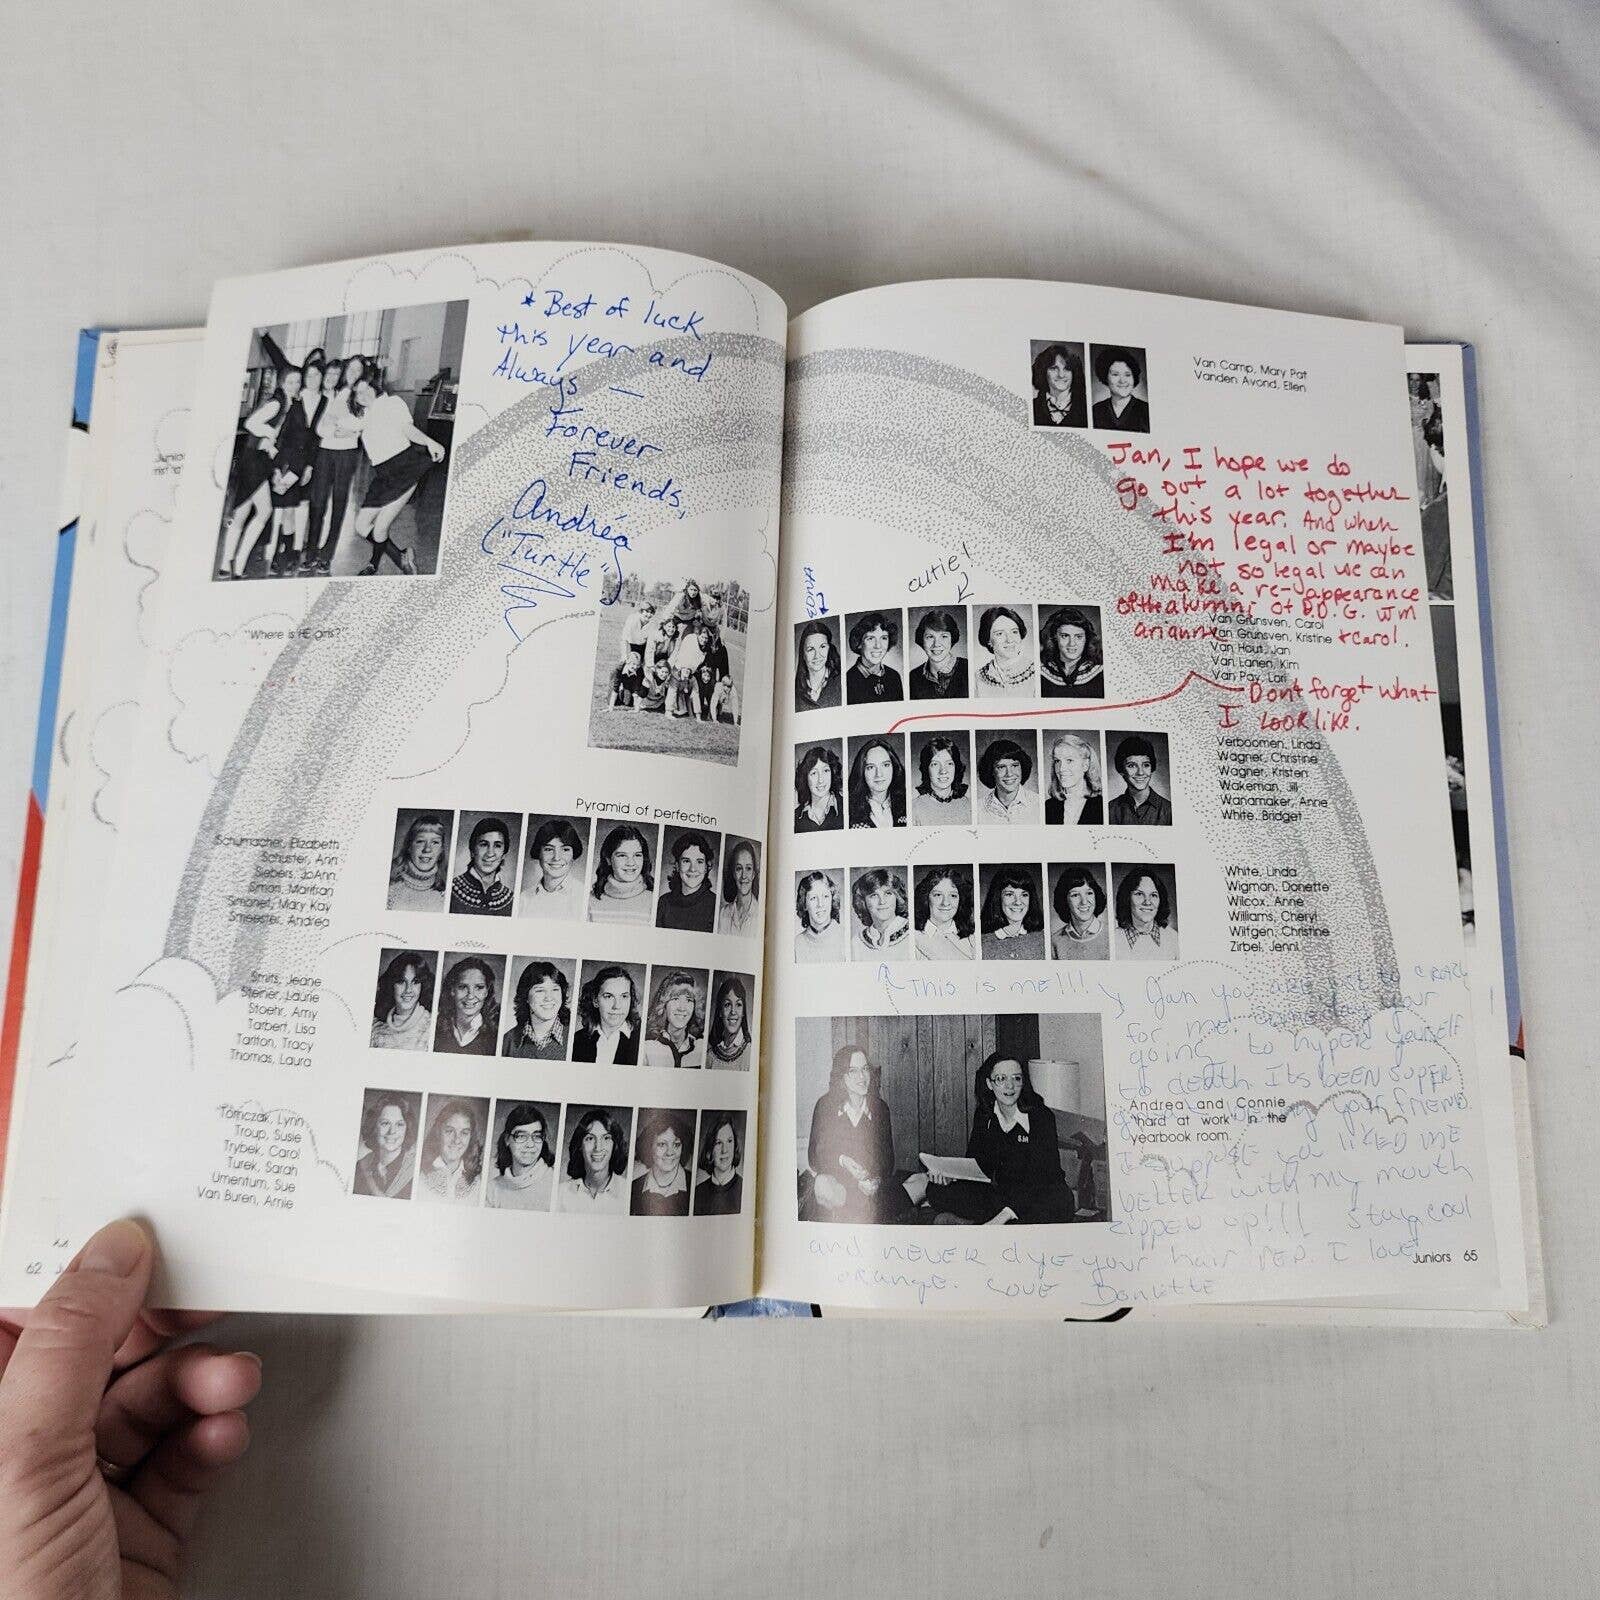 * Best of luck
this year and
Always —
Forever
Friends,
Andréa
("Turtle")
"Where is HE girls?"
Pyramid of perfection
Schumacher, Elizabeth
Schuster, Ann
Siebers, JoAnn
Simon, Marifran
Simonet, Mary Kay
Smeester, Andrea
Smits, Jeane
Steiner, Laurie
Stoehr, Amy
Tarbert, Lisa
Tarlton, Tracy
Thomas, Laura
Tomczak, Lynn
Troup, Susie
Trybek, Carol
Turek, Sarah
Umentum, Sue
Van Buren, Amie
62
Van Camp, Mary Pat
Vanden Avond, Ellen
Jan, I hope we do
go out a lot together
this year. And when
I'm legal or maybe
not so legal we can
make a re-appearance
of the alumni of D.D.G. WM
arianne + Carol.
cutie!
Van Grunsven, Carol
Van Grunsven, Kristine
Van Hout, Jan
Van Lanen, Kim
Van Pay, Lori
Don't forget what
I look like.
Verboomen, Linda
Wagner, Christine
Wagner, Kristen
Wakeman, Jill
Wanamaker, Anne
White, Bridget
White, Linda
Wigman, Donette
Wilcox, Anne
Williams, Cheryl
Wiltgen, Christine
Zirbel, Jenni
This is me!!!
Jan you are just to crazy
for me. Someday your
going to hyper yourself
to death Its been super
your friend.
I suppose you liked me
better with my mouth
zipped up!!! Stay cool
and never dye your hair red. I love
orange. Love Donette
Andrea and Connie
"hard at work" in the
yearbook room.
SM
Juniors 65